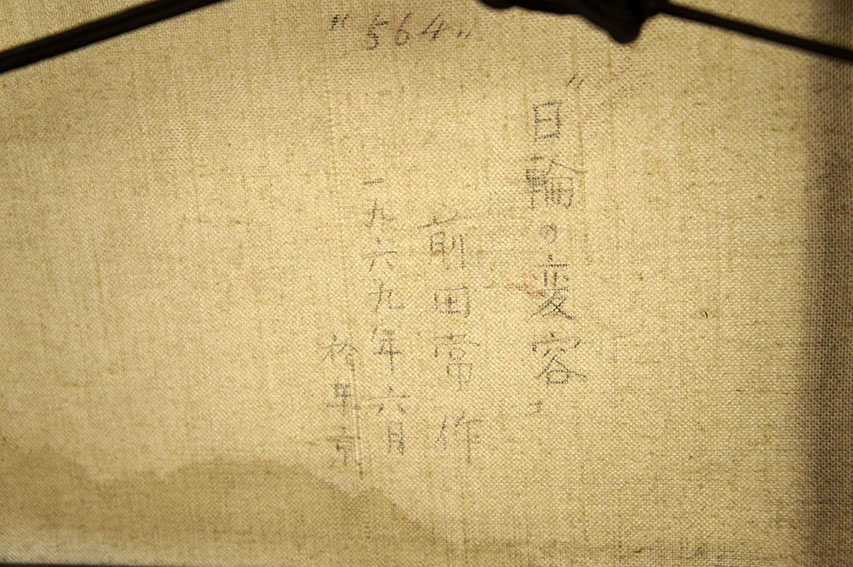 "564"
"日輪の変容"
前田常作
一九六九年六月
於東京